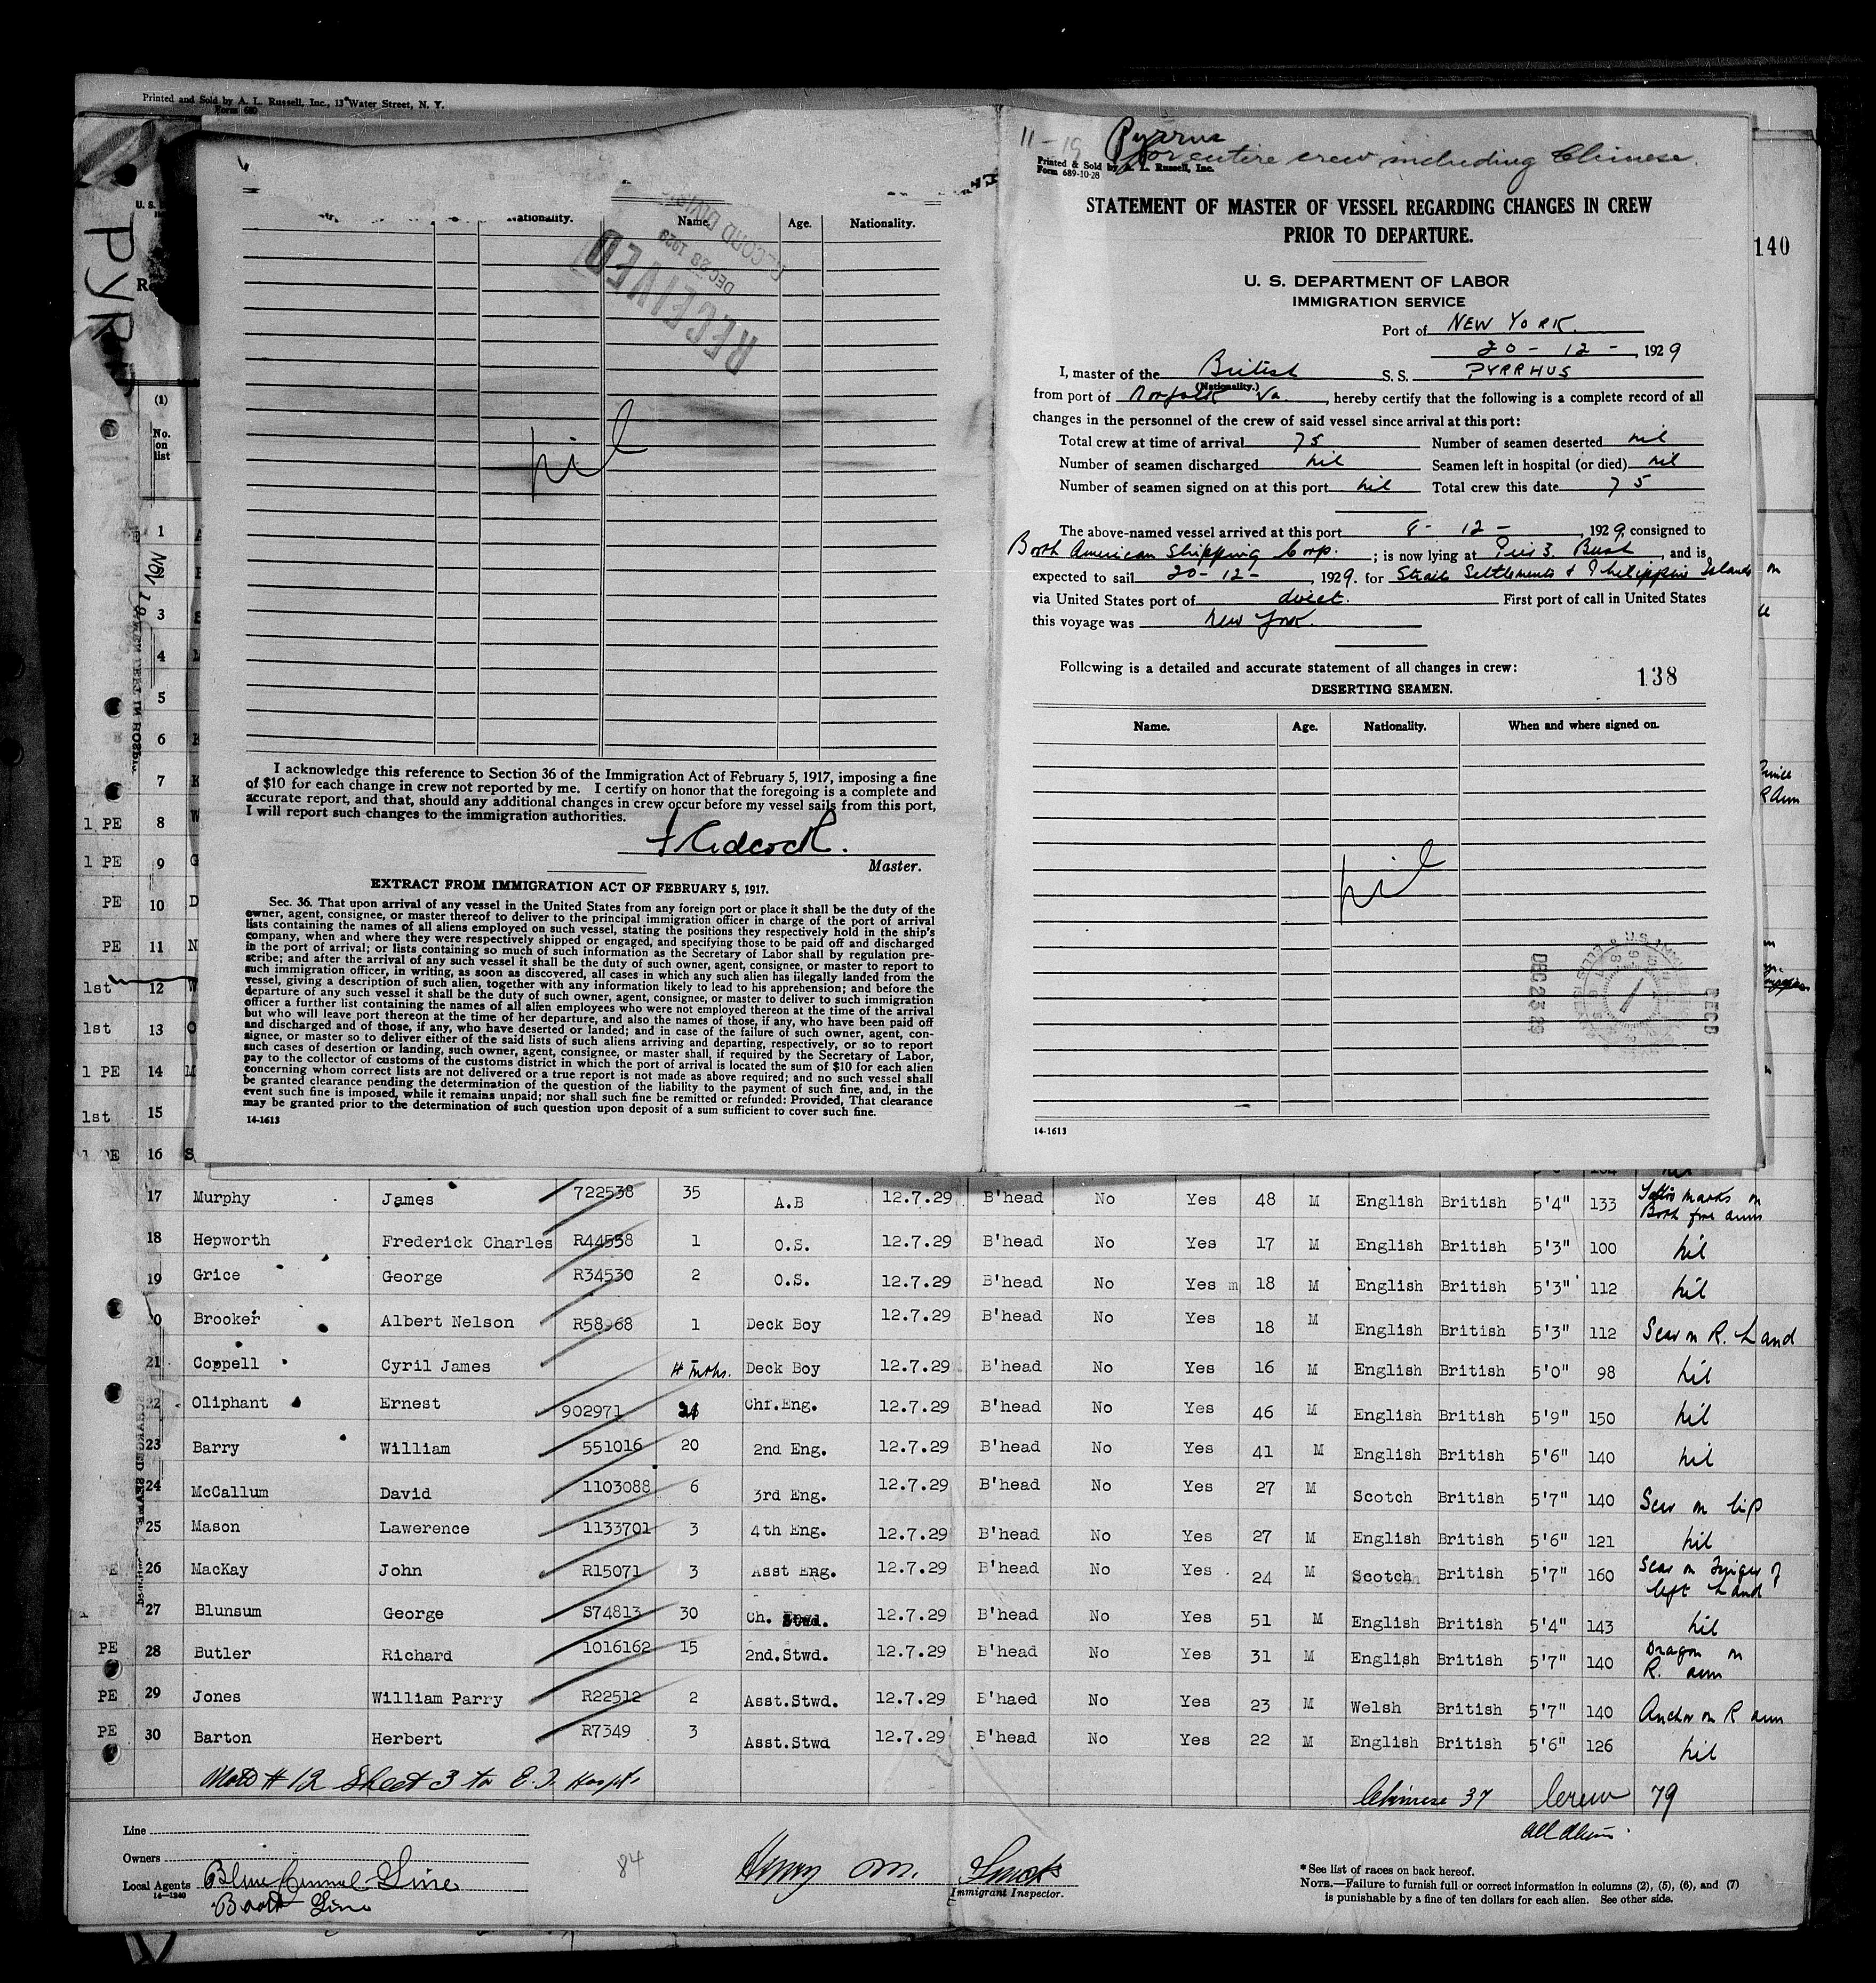 Printed and Sold by A. L. Russell, Inc., 13 Water Street, N. Y.
Form 680
U. S.
PYR
(1)
No.
on
list
140
1
3
4
5
6
7
1 PE 8
1 PE 9
PE 10
PE 11
1st 12
1st 13
1 PE 14
1st 15
1 PE 16
Nationality. Name. Age. Nationality.
RECEIVED
DEC 23 1929
RECORD DIVI
nil
I acknowledge this reference to Section 36 of the Immigration Act of February 5, 1917, imposing a fine
of $10 for each change in crew not reported by me. I certify on honor that the foregoing is a complete and
accurate report, and that, should any additional changes in crew occur before my vessel sails from this port,
I will report such changes to the immigration authorities.
Master.
EXTRACT FROM IMMIGRATION ACT OF FEBRUARY 5, 1917.
Sec. 36. That upon arrival of any vessel in the United States from any foreign port or place it shall be the duty of the
owner, agent, consignee, or master thereof to deliver to the principal immigration officer in charge of the port of arrival
lists containing the names of all aliens employed on such vessel, stating the positions they respectively hold in the ship's
company, when and where they were respectively shipped or engaged, and specifying those to be paid off and discharged
in the port of arrival; or lists containing so much of such information as the Secretary of Labor shall by regulation pre-
scribe; and after the arrival of any such vessel it shall be the duty of such owner, agent, consignee, or master to report to
such immigration officer, in writing, as soon as discovered, all cases in which any such alien has illegally landed from the
vessel, giving a description of such alien, together with any information likely to lead to his apprehension; and before the
departure of any such vessel it shall be the duty of such owner, agent, consignee, or master to deliver to such immigration
officer a further list containing the names of all alien employees who were not employed thereon at the time of the arrival
but who will leave port thereon at the time of her departure, and also the names of those, if any, who have been paid off
and discharged and of those, if any, who have deserted or landed; and in case of the failure of such owner, agent, con-
signee, or master so to deliver either of the said lists of such aliens arriving and departing, respectively, or so to report
such cases of desertion or landing, such owner, agent, consignee, or master shall, if required by the Secretary of Labor,
pay to the collector of customs of the customs district in which the port of arrival is located the sum of $10 for each alien
concerning whom correct lists are not delivered or a true report is not made as above required; and no such vessel shall
be granted clearance pending the determination of the question of the liability to the payment of such fine, and, in the
event such fine is imposed, while it remains unpaid; nor shall such fine be remitted or refunded: Provided, That clearance
may be granted prior to the determination of such question upon deposit of a sum sufficient to cover such fine.
14-1613
11-19 Pyrrus
for entire crew including Chinese.
Printed & Sold by A. L. Russell, Inc.
Form 689-10-28
STATEMENT OF MASTER OF VESSEL REGARDING CHANGES IN CREW
PRIOR TO DEPARTURE.
U. S. DEPARTMENT OF LABOR
IMMIGRATION SERVICE
Port of NEW YORK.
20 - 12 - , 1929
I, master of the British S. S. PYRRHUS
(Nationality.)
from port of Norfolk Va. , hereby certify that the following is a complete record of all
changes in the personnel of the crew of said vessel since arrival at this port:
Total crew at time of arrival 75 Number of seamen deserted nil
Number of seamen discharged nil Seamen left in hospital (or died) nil
Number of seamen signed on at this port nil Total crew this date 75
The above-named vessel arrived at this port 8 - 12 - , 1929, consigned to
Booth American Shipping Corp. ; is now lying at Pier 3. Bush , and is
expected to sail 20-12- , 1929. for Straits Settlements & Philippine Islands
via United States port of direct. First port of call in United States
this voyage was New York.
Following is a detailed and accurate statement of all changes in crew:
138
DESERTING SEAMEN.
Name. Age. Nationality. When and where signed on.
nil
DEC 23 29
RECD
14-1613
17 Murphy James 722538 35 A.B 12.7.29 B'head No Yes 48 M English British 5'4" 133 Tattoo marks on Both fore arms
18 Hepworth Frederick Charles R44558 1 O.S. 12.7.29 B'head No Yes 17 M English British 5'3" 100 nil
19 Grice George R34530 2 O.S. 12.7.29 B'head No Yes m 18 M English British 5'3" 112 nil
20 Brooker Albert Nelson R58968 1 Deck Boy 12.7.29 B'head No Yes 18 M English British 5'3" 112 Scar on R. hand
21 Coppell Cyril James 4 mths. Deck Boy 12.7.29 B'head No Yes 16 M English British 5'0" 98 nil
22 Oliphant Ernest 902971 Chf.Eng. 12.7.29 B'head No Yes 46 M English British 5'9" 150 nil
23 Barry William 551016 20 2nd Eng. 12.7.29 B'head No Yes 41 M English British 5'6" 140 nil
24 McCallum David 1103088 6 3rd Eng. 12.7.29 B'head No Yes 27 M Scotch British 5'7" 140 Scar on lip
25 Mason Lawerence 1133701 3 4th Eng. 12.7.29 B'head No Yes 27 M English British 5'6" 121 nil
PE 26 MacKay John R15071 3 Asst Eng. 12.7.29 B'head No Yes 24 M Scotch British 5'7" 160 Scar on finger of left hand
27 Blunsum George S74813 30 Ch. Stwd. 12.7.29 B'head No Yes 51 M English British 5'4" 143 nil
PE 28 Butler Richard 1016162 15 2nd.Stwd. 12.7.29 B'head No Yes 31 M English British 5'7" 140 Dragon on R. arm
PE 29 Jones William Parry R22512 2 Asst.Stwd. 12.7.29 B'haed No Yes 23 M Welsh British 5'7" 140 Anchor on R arm
PE 30 Barton Herbert R7349 3 Asst.Stwd 12.7.29 B'head No Yes 22 M English British 5'6" 126 nil
# 12 Sheet 3 to E. I. Hospt.
Chinese 37 Crew 79
Line
Owners
Local Agents Blue Funnel Line
14-1240
Booth Line
84
Henry M.
Immigrant Inspector.
* See list of races on back hereof.
NOTE.—Failure to furnish full or correct information in columns (2), (5), (6), and (7)
is punishable by a fine of ten dollars for each alien. See other side.